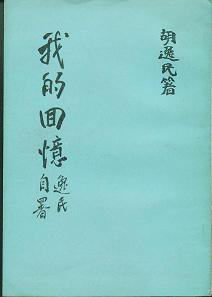 胡逸民著
我的回憶
逸民
自署